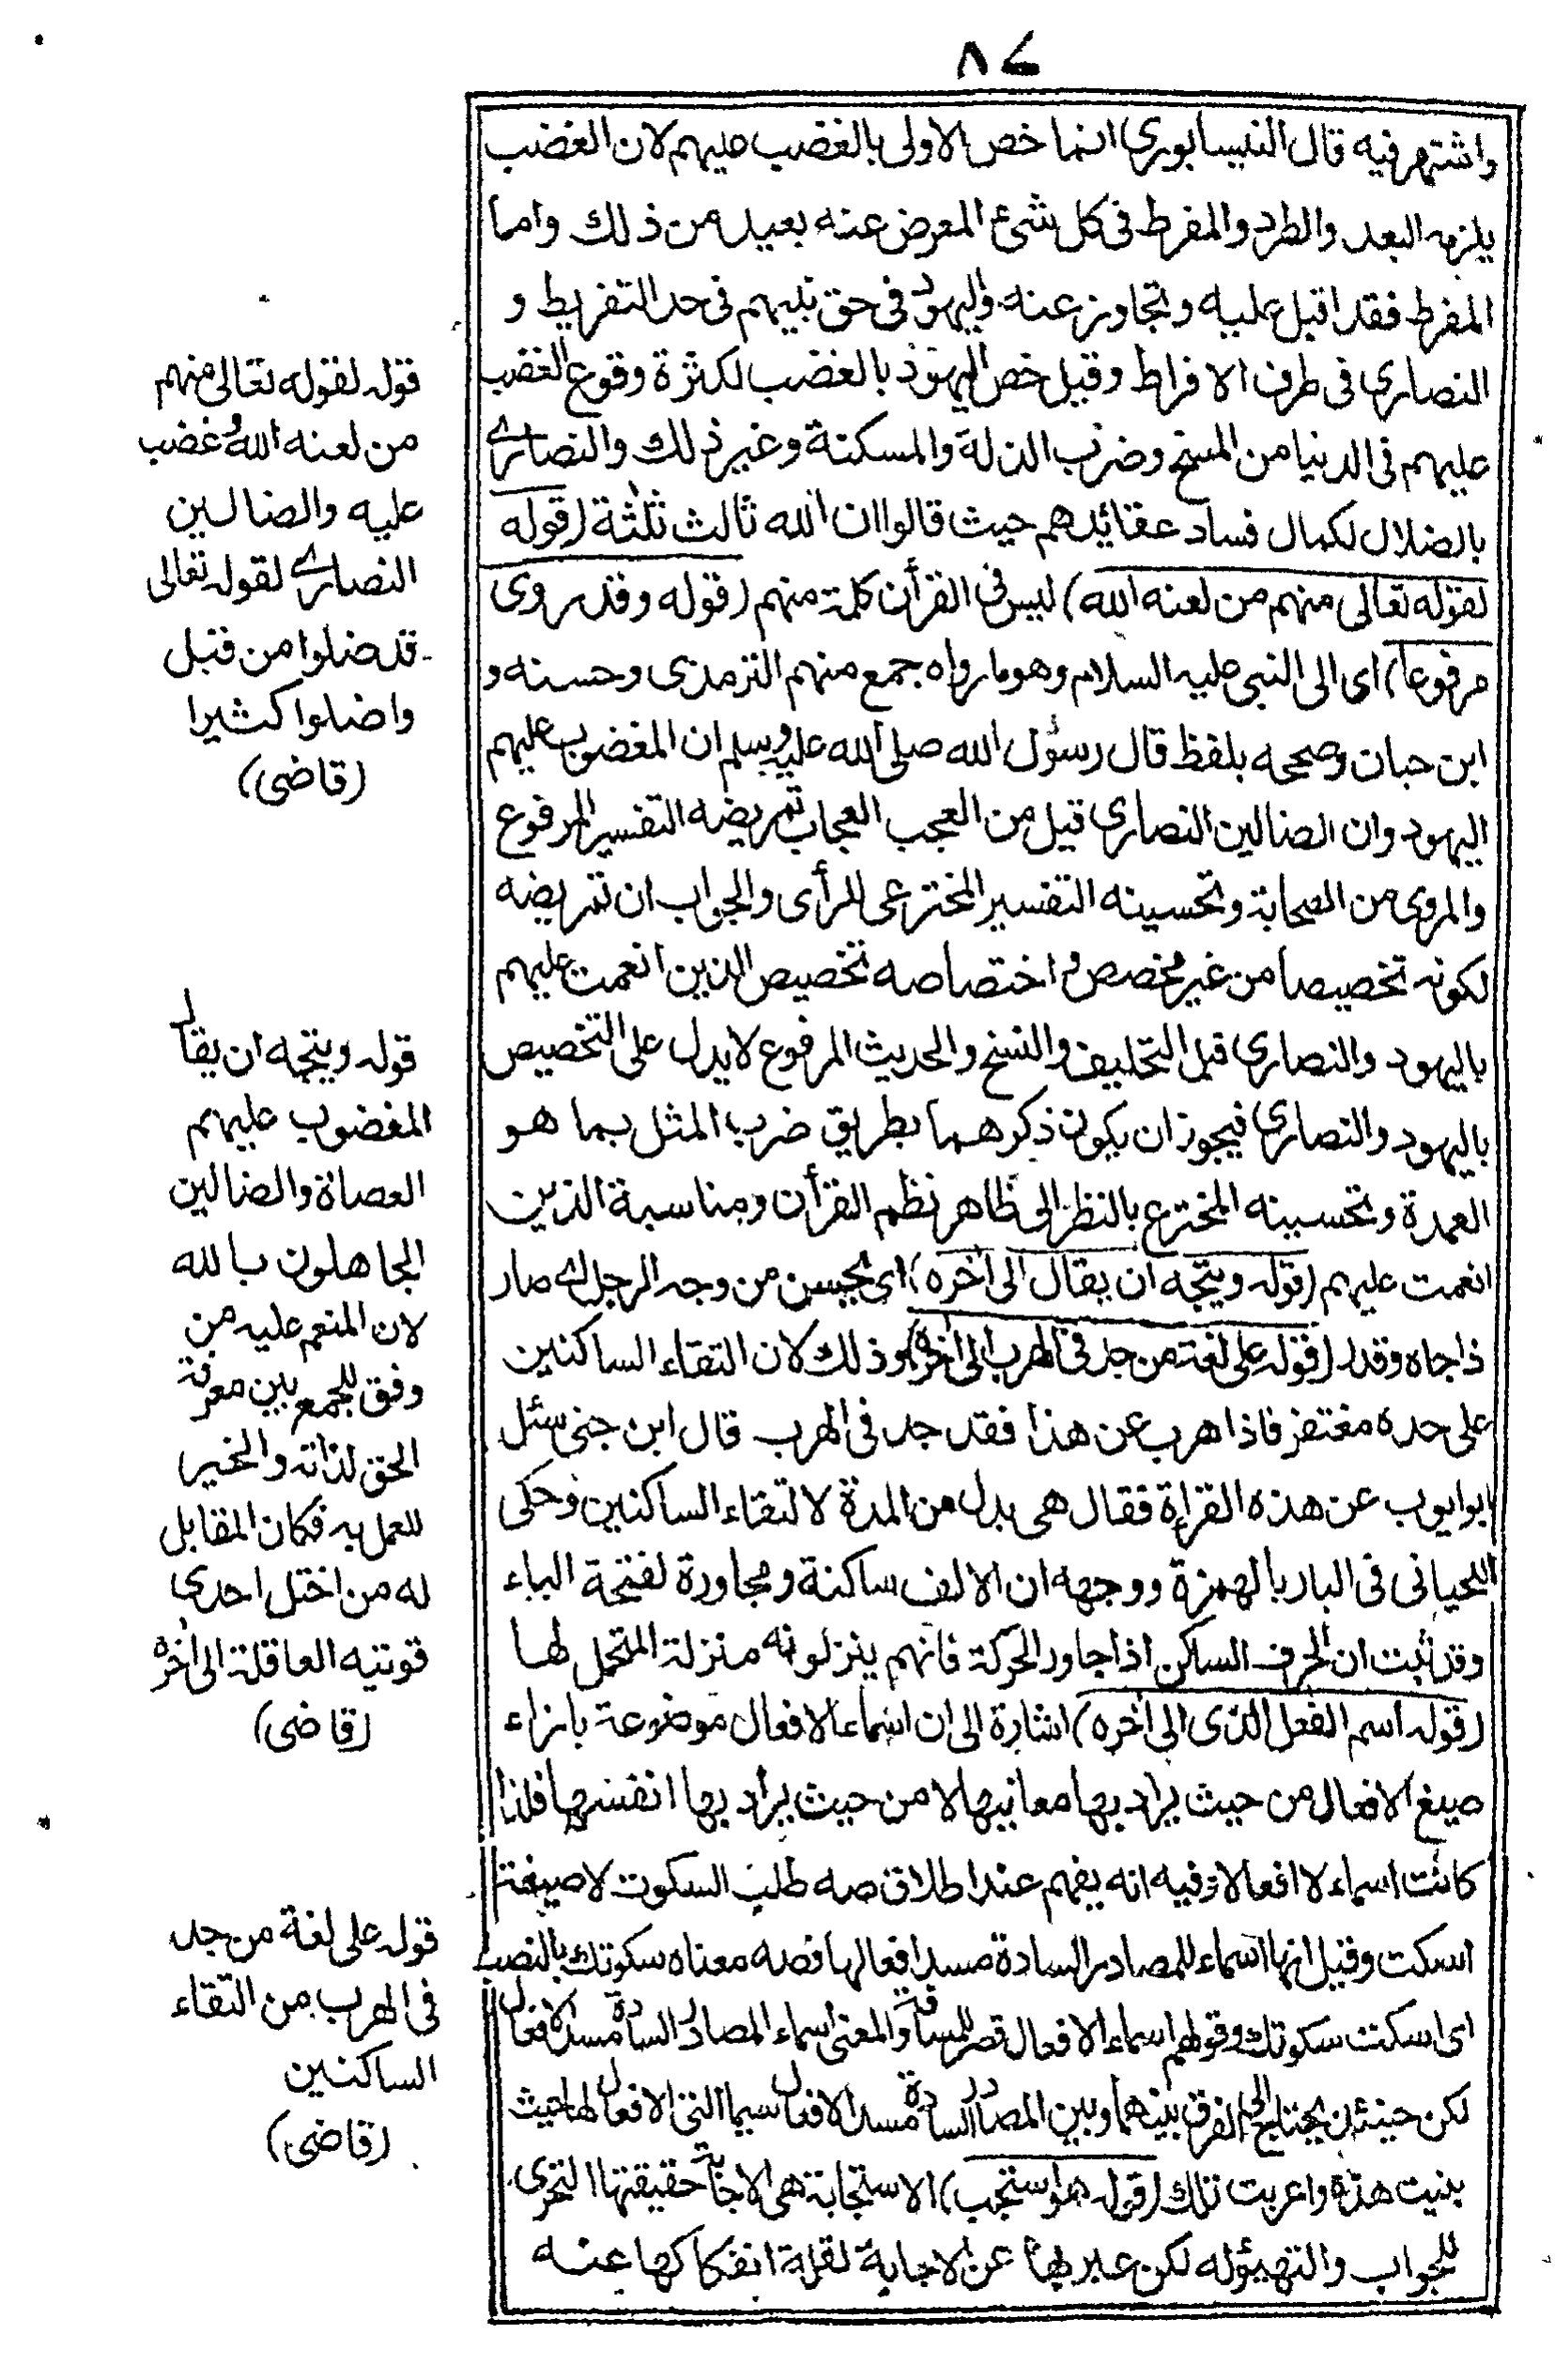 ٨٧
واشتهر فيه قال النيسابوري انما خص الاولى بالغضب عليهم لان الغضب
يلزمه البعد والطرد والمفرط فى كل شئ المعرض عنه بعيد من ذلك واما
المفرط فقد اقبل عليه وتجاوز عنه واليهود فى حق نبيهم فى حد التفريط و
النصارى فى طرف الافراط وقيل خص اليهود بالغضب لكثرة وقوع الغضب
عليهم فى الدنيا من المسخ وضرب الذلة والمسكنة وغير ذلك والنصارے
بالضلال لكمال فساد عقائدهم حيث قالوا ان الله ثالث ثلثة (قوله
لقوله تعالى منهم من لعنه الله) ليس فى القرأن كلمة منهم (قوله وقد روى
مرفوعا) اى الى النبى عليه السلام وهو ما رواه جمع منهم الترمذى وحسنه و
ابن حبان وصححه بلفظ قال رسول الله صلى الله عليه وسلم ان المغضوب عليهم
اليهود وان الضالين النصارى قيل من العجب العجاب تمريضه التفسير المرفوع
والمروى من الصحابة وتحسينه التفسير المخترعى للرأى والجواب ان تمريضه
لكونه تخصيصا من غير مخصص و اختصاصه تخصيص الذين انعمت عليهم
باليهود والنصارى قبل التحليف والنسخ والحديث المرفوع لا يدل على التخصيص
باليهود والنصارى فيجوز ان يكون ذكرهما بطريق ضرب المثل بما هو
العمدة وتحسينه المخترع بالنظر الى ظاهر نظم القرأن ومناسبة الذين
انعمت عليهم (قوله ويتجه ان يقال الى أخره) اى يحسن من وجه الرجل اے صار
ذا جاه وقدر (قوله على لغة من جد فى الهرب الى أخره) وذلك لان التقاء الساكنين
على حده مغتفر فاذا هرب عن هذا فقد جد فى الهرب قال ابن جنى سئل
ابو ايوب عن هذه القراءة فقال هى بدل من المدة لالتقاء الساكنين وحكى
اللحيانى فى الباز بالهمزة ووجهه ان الالف ساكنة ومجاورة لفتحة الباء
وقد ثبت ان الحرف الساكن اذا جاور الحركة فانهم ينزلونه منزلة المتحمل لها
(قوله اسم الفعل الذى الى أخره) اشارة الى ان اسماء الافعال موضوعة بازاء
صيغ الافعال من حيث يراد بها معانيها لا من حيث يراد بها انفسها فلذا
كانت اسماء لا افعالا وفيه انه يفهم عند اطلاق صه طلب السكوت لا صيغة
اسكت وقيل انها اسماء للمصادر السادة مسد افعالها فصه معناه سكوتك بالنصب
اى اسكت سكوتك وقولهم اسماء الافعال قصر للمسافة والمعنى اسماء المصادر السادة مسد الافعال
لكن حينئذ يحتاج الى الفرق بينهما وبين المصادر السادة مسد الافعال سيما التى لا فعل لها حيث
بنيت هذه واعربت تلك (قوله هو استجب) الاستجابة هى الاجابة حقيقتها التحرى
للجواب والتهيؤ له لكن عبر بها عن الاجابة لقلة انفكاكها عنه
قوله لقوله تعالى منهم
من لعنه الله وغضب
عليه والضالين
النصارے لقوله تعالى
قد ضلوا من قبل
واضلوا كثيرا
(قاضى)
قوله ويتجه ان يقال
المغضوب عليهم
العصاة والضالين
الجاهلون بالله
لان المنعم عليه من
وفق للجمع بين معرفة
الحق لذاته والخير
للعمل به فكان المقابل
له من اختل احدى
قوتيه العاقلة الى أخره
(قاضى)
قوله على لغة من جد
فى الهرب من التقاء
الساكنين
(قاضى)